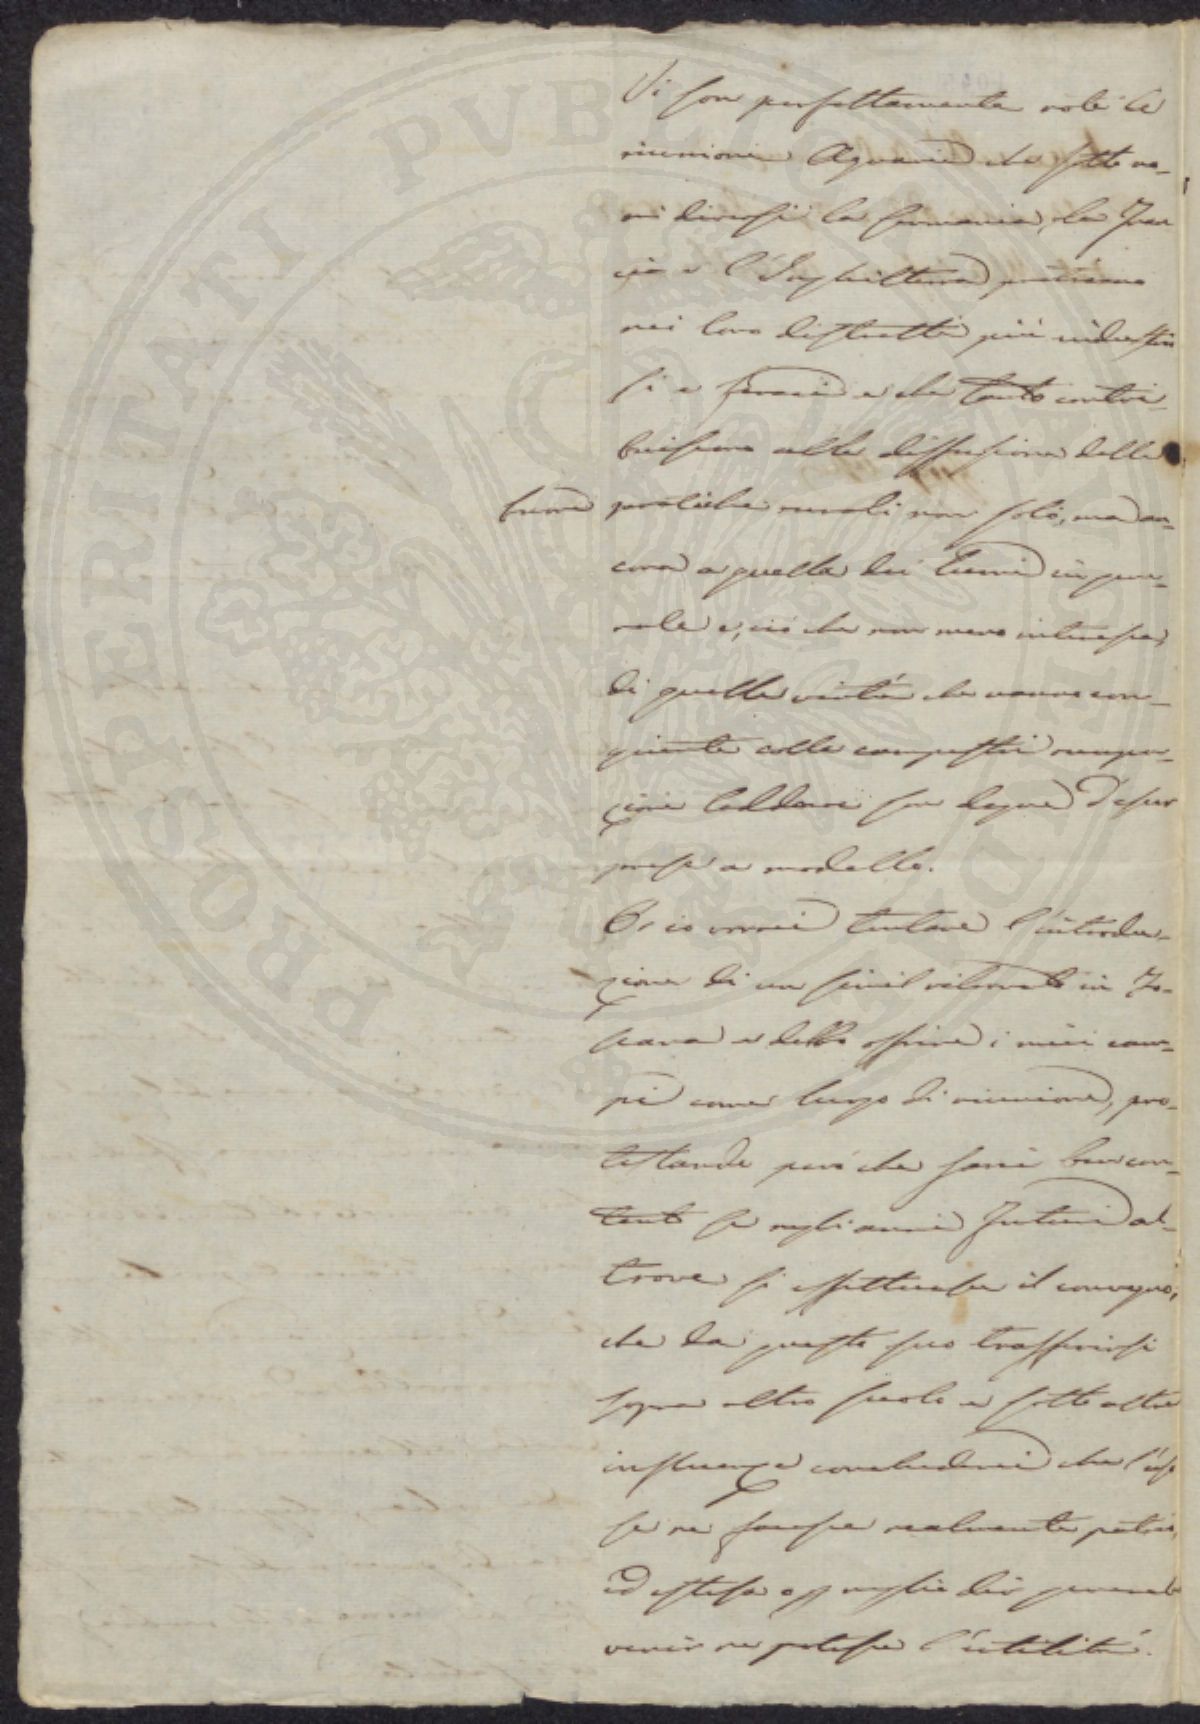 Vi son perfettamente note le
riunioni Agrarie che sotto no-
mi diversi la Germania, la Fran
cia e l'Inghilterra praticano
nei loro distretti più industrio
si e feraci e che tanto contri-
buiscono alla diffusione delle
buone pratiche rurali non solo, ma an-
cora a quella dei lumi in gene-
rale e, ciò che non meno interessa,
di quelle virtù che vanno con-
giunte colle campestri occupa-
zioni laddove son degne d'esser
prese a modello.
Or io vorrei tentare l'introdu-
zione di un simil ritrovato in To-
scana e debbo offrire i miei cam-
pi come luogo di riunione, pro-
testando però che sarei ben con-
tento se negli anni futuri al-
trove si effettuasse il convegno,
che da questo suo trasferirsi
sopra altro suolo e sotto altre
influenze concluderei che l'es
se ne fosse realmente patria
ed estesa o meglio dir generale
venir ne potesse l'utilità.
PROSPERITATI PVBLICAE